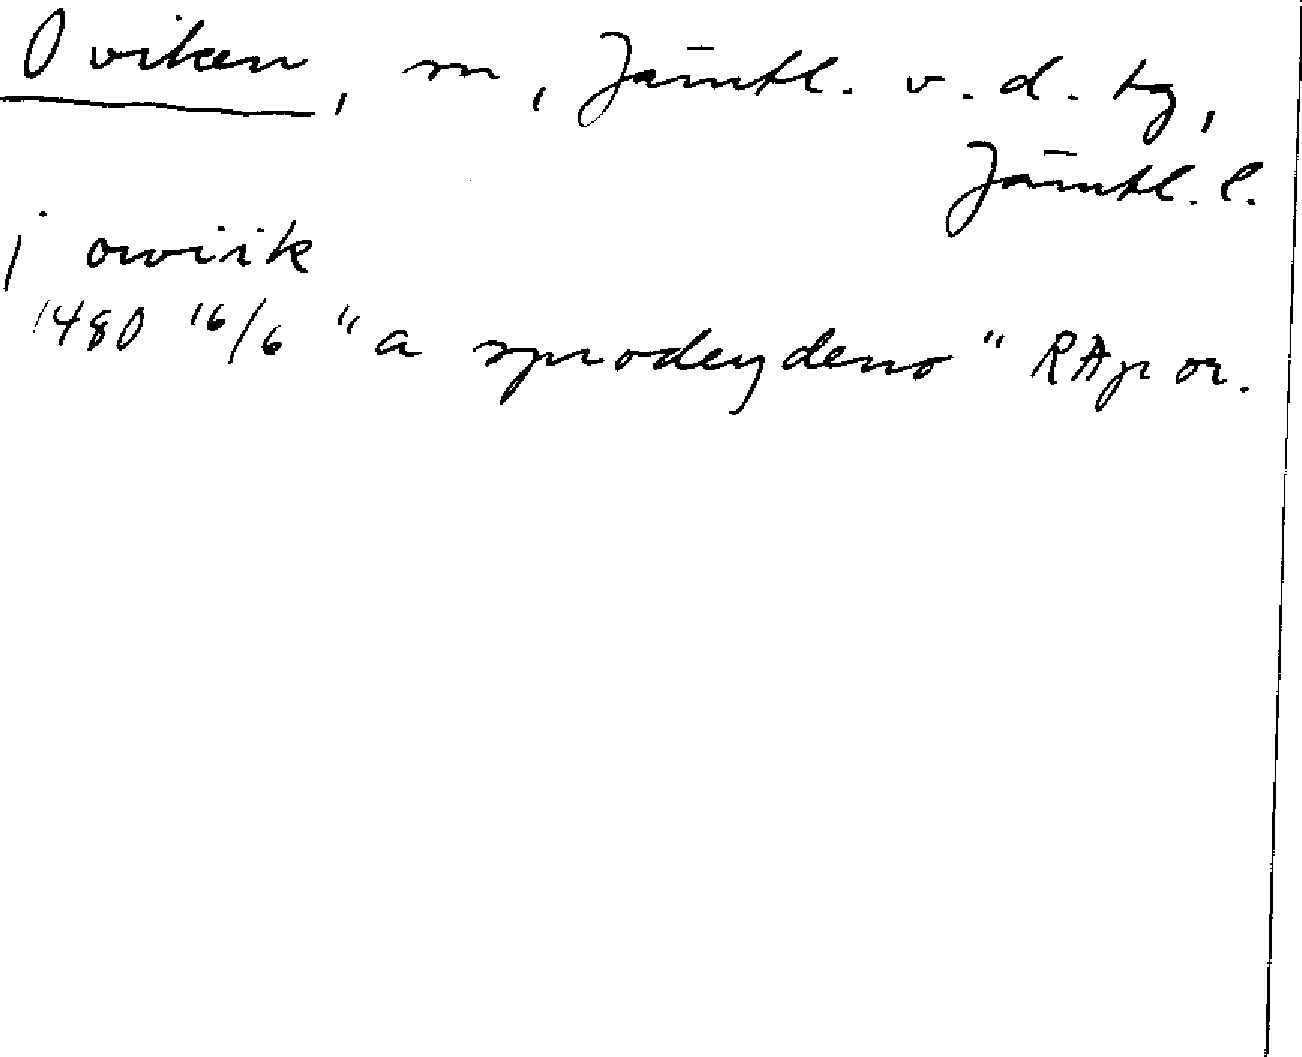 Oviken, sn, Jämtl. v. d. tg,
Jämtl. l.
j owiik
1480 16/6 "a" RAp or.